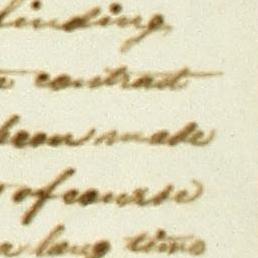 binding
a contract
been made
of course
a long time